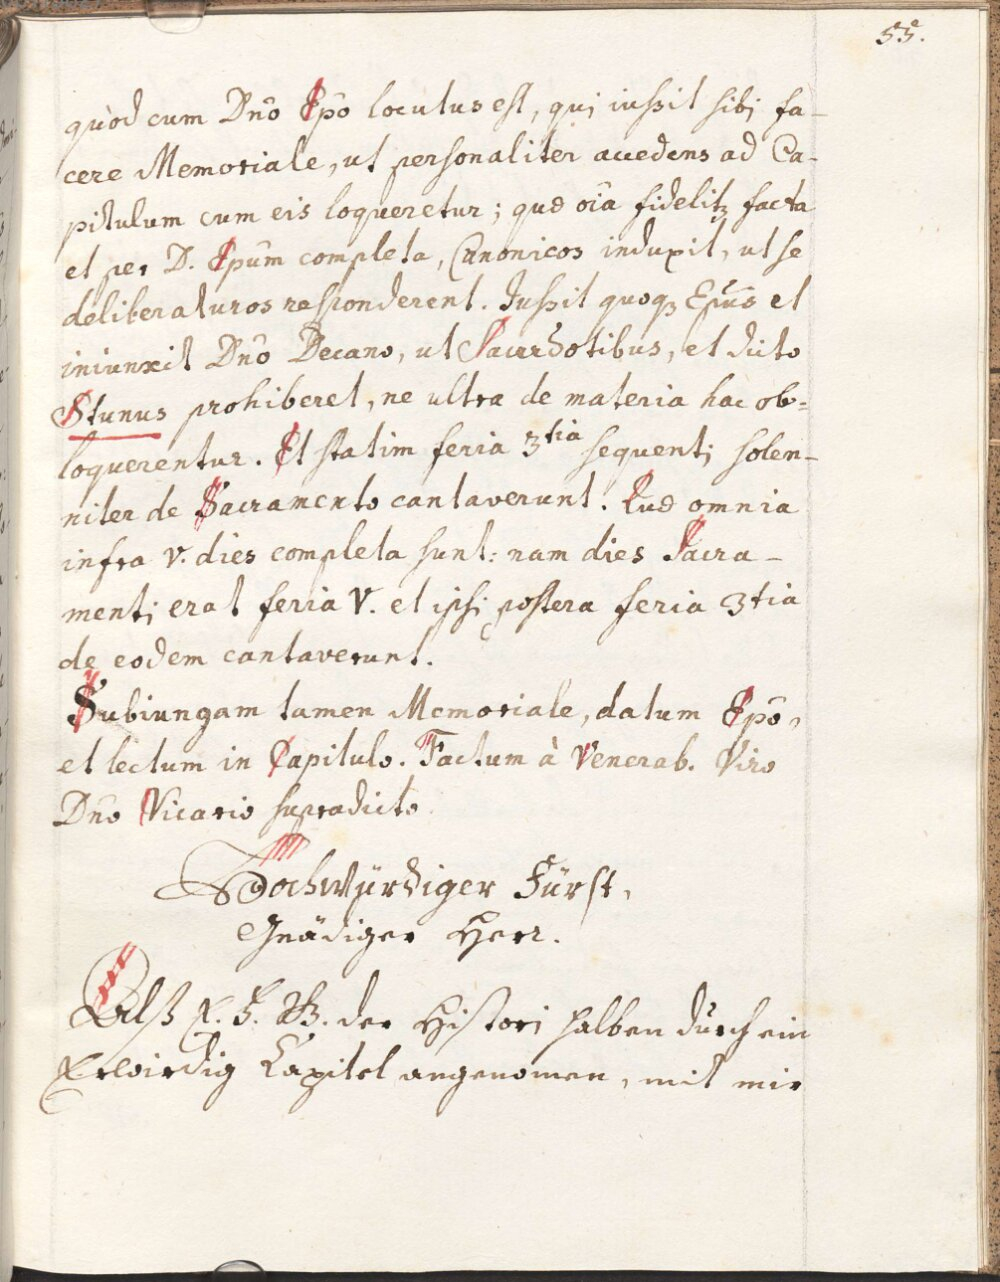 55.
quòd cum Dño Epõ locutus est, qui iussit sibi fa-
cere Memoriale, ut personaliter accedens ad Ca-
pitulum cum eis loqueretur; quæ oĩa fidelitꝫ facta
et per D. Epũm completa, Canonicos induxit, ut se
deliberaturos responderent. Jussit quoqꝫ Epũs et
iniunxit Dño Decano, ut Sacerdotibus, et dicto
Stunus prohiberet, ne ultra de materia hac ob=
loquerentur. Et statim feria 3tia sequenti solen-
niter de Sacramento cantaverunt. Quæ omnia
infra V. dies completa sunt: nam dies Sacra-
menti erat feria V. et ipsi postera feria 3tia
de eodem cantaverunt.
Subiungam tamen Memoriale, datum Epõ,
et lectum in Capitulo. Factum à Venerab. Viro
Dño Vicario supradicto.
Hochwürdiger Fürst,
Gnädiger Herr.
Alß E. F. G. der Histori halben durch ein
Erwirdig Capitel angenomen, mit mir